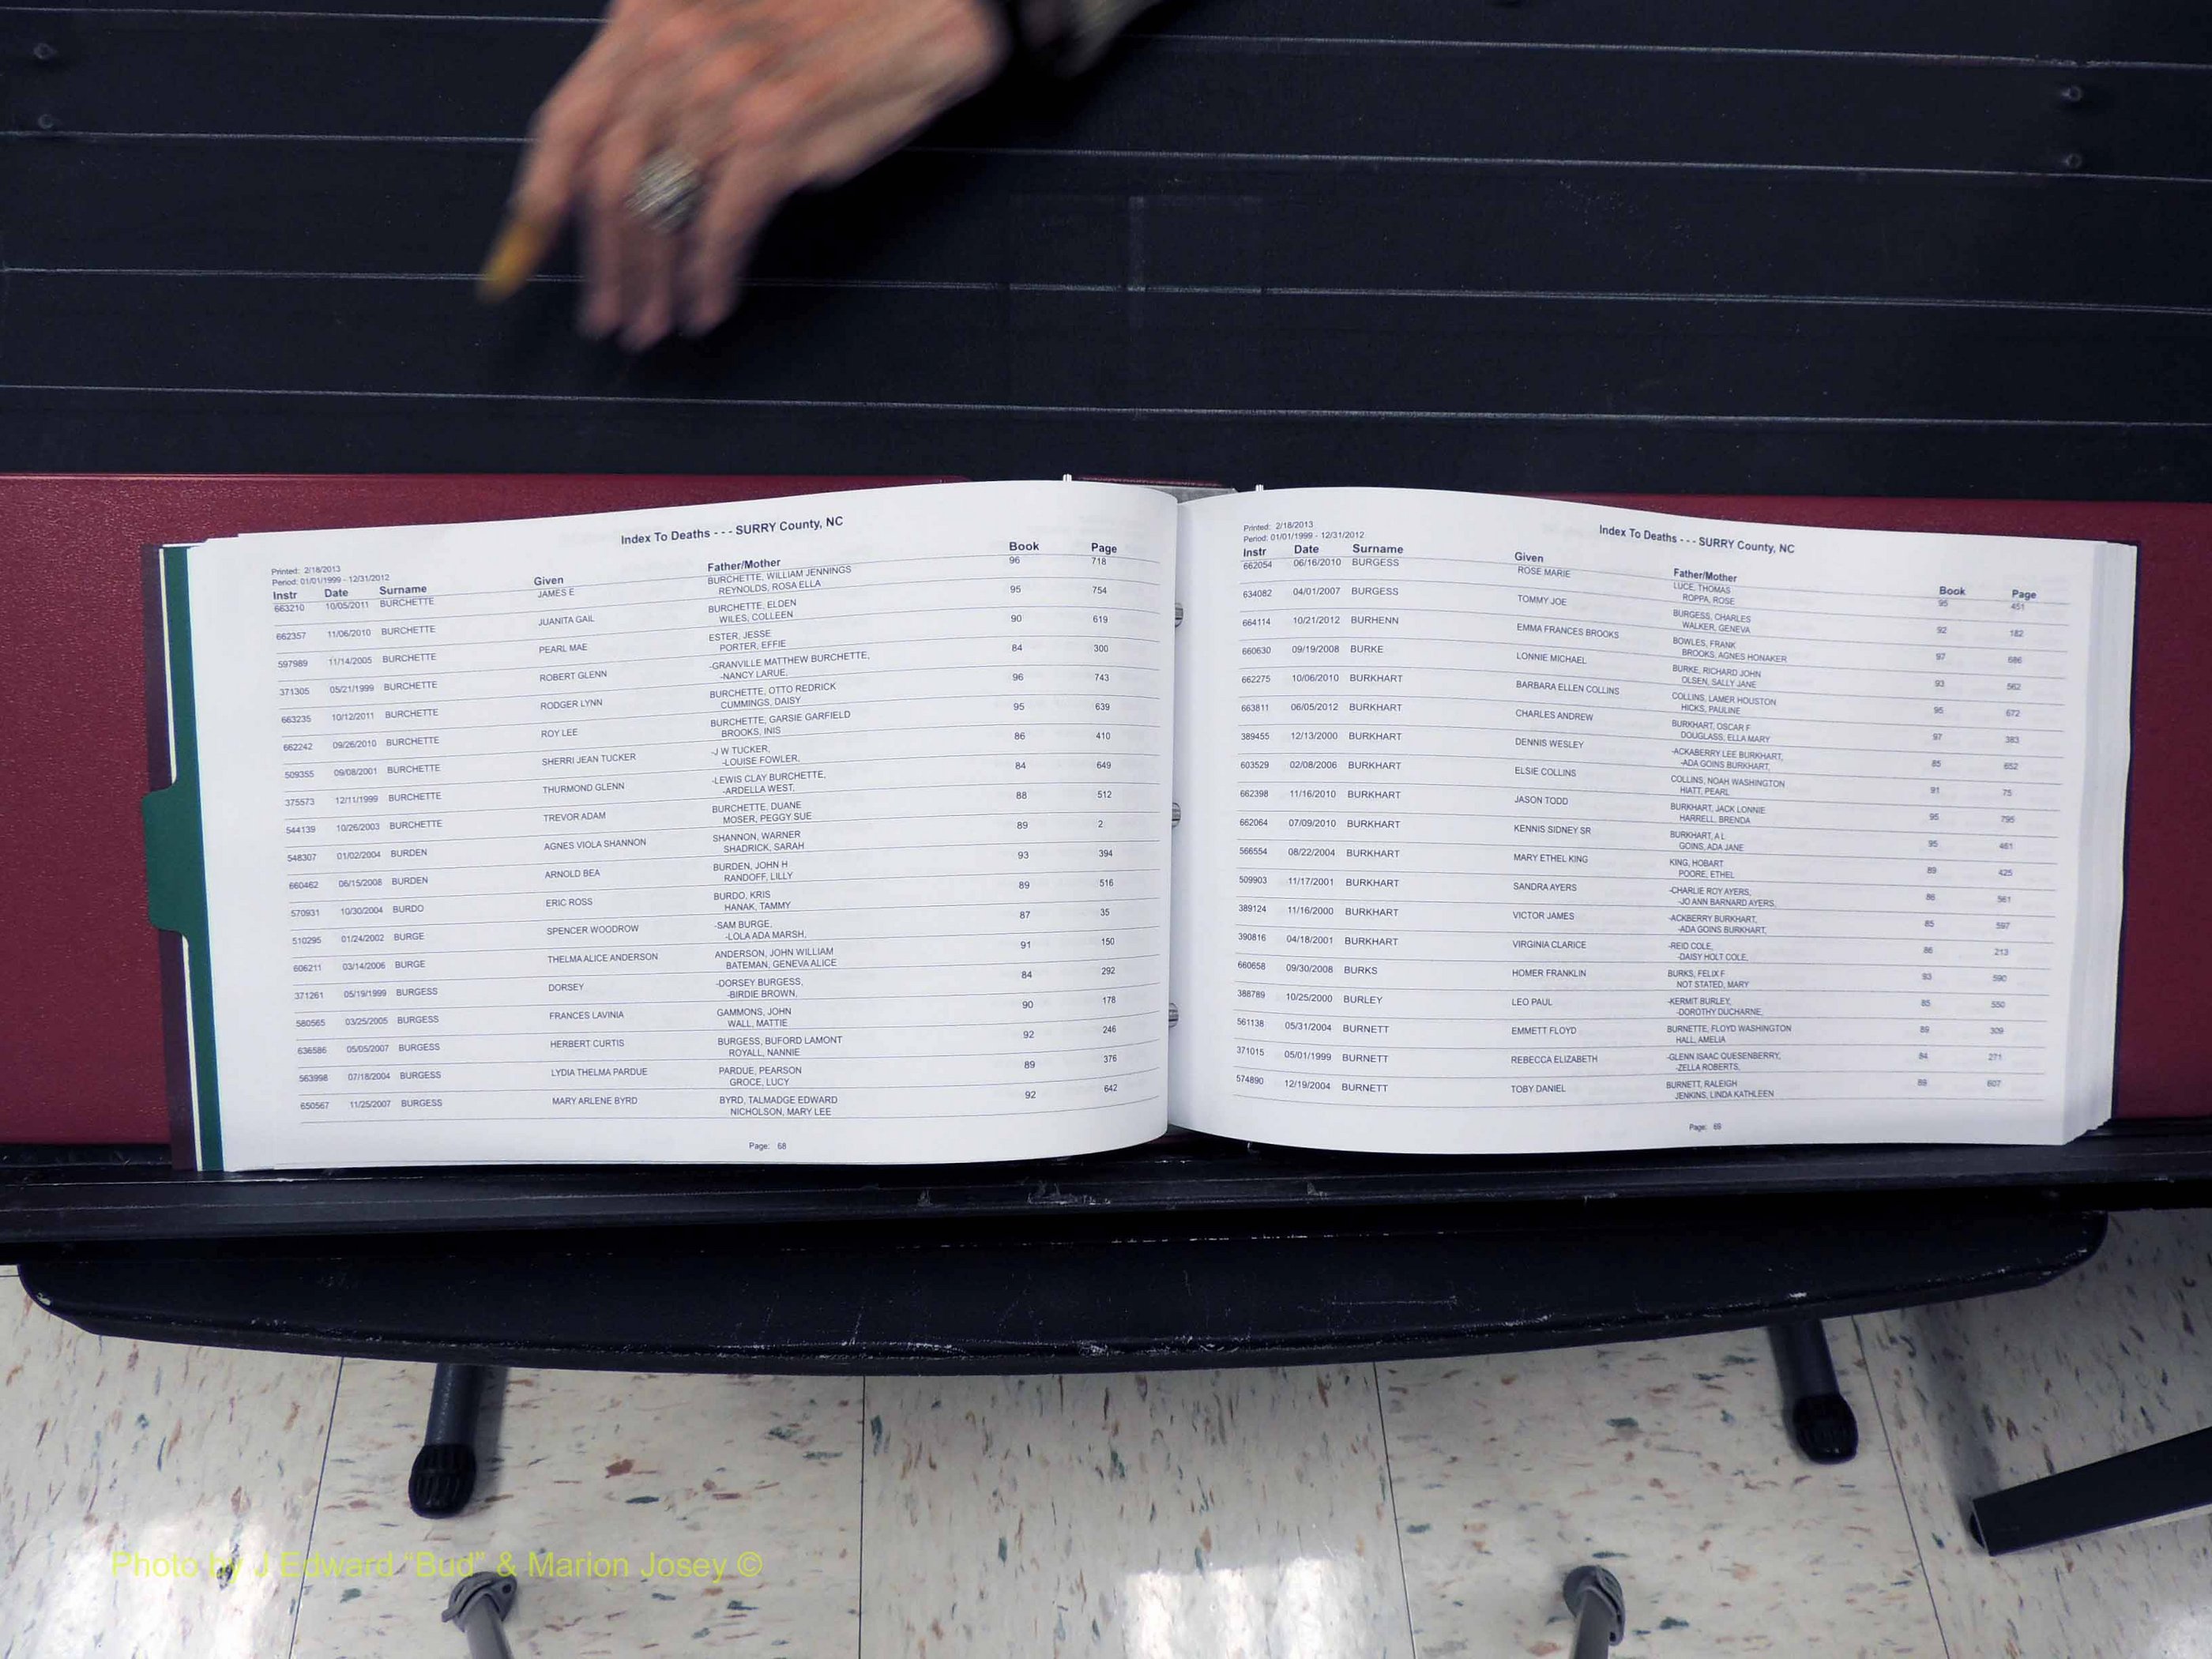 Index To Deaths - - - SURRY County, NC
Printed: 2/18/2013
Period: 01/01/1999 - 12/31/2012
Instr Date Surname Given Father/Mother Book Page
663210 10/05/2011 BURCHETTE JAMES E BURCHETTE, WILLIAM JENNINGS 96 718
REYNOLDS, ROSA ELLA
662357 11/06/2010 BURCHETTE JUANITA GAIL BURCHETTE, ELDEN 95 754
WILES, COLLEEN
597989 11/14/2005 BURCHETTE PEARL MAE ESTER, JESSE 90 619
PORTER, EFFIE
371305 05/21/1999 BURCHETTE ROBERT GLENN -GRANVILLE MATTHEW BURCHETTE, 84 300
-NANCY LARUE,
663235 10/12/2011 BURCHETTE RODGER LYNN BURCHETTE, OTTO REDRICK 96 743
CUMMINGS, DAISY
662242 09/26/2010 BURCHETTE ROY LEE BURCHETTE, GARSIE GARFIELD 95 639
BROOKS, INIS
509355 09/08/2001 BURCHETTE SHERRI JEAN TUCKER -J W TUCKER, 86 410
-LOUISE FOWLER,
375573 12/11/1999 BURCHETTE THURMOND GLENN -LEWIS CLAY BURCHETTE, 84 649
-ARDELLA WEST,
544139 10/26/2003 BURCHETTE TREVOR ADAM BURCHETTE, DUANE 88 512
MOSER, PEGGY SUE
548307 01/02/2004 BURDEN AGNES VIOLA SHANNON SHANNON, WARNER 89 2
SHADRICK, SARAH
660462 06/15/2008 BURDEN ARNOLD BEA BURDEN, JOHN H 93 394
RANDOFF, LILLY
570931 10/30/2004 BURDO ERIC ROSS BURDO, KRIS 89 516
HANAK, TAMMY
510295 01/24/2002 BURGE SPENCER WOODROW -SAM BURGE, 87 35
-LOLA ADA MARSH,
606211 03/14/2006 BURGE THELMA ALICE ANDERSON ANDERSON, JOHN WILLIAM 91 150
BATEMAN, GENEVA ALICE
371261 05/19/1999 BURGESS DORSEY -DORSEY BURGESS, 84 292
-BIRDIE BROWN,
580565 03/25/2005 BURGESS FRANCES LAVINIA GAMMONS, JOHN 90 178
WALL, MATTIE
636586 05/05/2007 BURGESS HERBERT CURTIS BURGESS, BUFORD LAMONT 92 246
ROYALL, NANNIE
563998 07/18/2004 BURGESS LYDIA THELMA PARDUE PARDUE, PEARSON 89 376
GROCE, LUCY
650567 11/25/2007 BURGESS MARY ARLENE BYRD BYRD, TALMADGE EDWARD 92 642
NICHOLSON, MARY LEE
Page: 68
Index To Deaths - - - SURRY County, NC
Printed: 2/18/2013
Period: 01/01/1999 - 12/31/2012
Instr Date Surname Given Father/Mother Book Page
662054 06/16/2010 BURGESS ROSE MARIE LUCE, THOMAS 95 451
ROPPA, ROSE
634082 04/01/2007 BURGESS TOMMY JOE BURGESS, CHARLES 92 182
WALKER, GENEVA
664114 10/21/2012 BURHENN EMMA FRANCES BROOKS BOWLES, FRANK 97 686
BROOKS, AGNES HONAKER
660630 09/19/2008 BURKE LONNIE MICHAEL BURKE, RICHARD JOHN 93 562
OLSEN, SALLY JANE
662275 10/06/2010 BURKHART BARBARA ELLEN COLLINS COLLINS, LAMER HOUSTON 95 672
HICKS, PAULINE
663811 06/05/2012 BURKHART CHARLES ANDREW BURKHART, OSCAR F 97 383
DOUGLASS, ELLA MARY
389455 12/13/2000 BURKHART DENNIS WESLEY -ACKABERRY LEE BURKHART, 85 652
-ADA GOINS BURKHART,
603529 02/08/2006 BURKHART ELSIE COLLINS COLLINS, NOAH WASHINGTON 91 75
HIATT, PEARL
662398 11/16/2010 BURKHART JASON TODD BURKHART, JACK LONNIE 95 795
HARRELL, BRENDA
662064 07/09/2010 BURKHART KENNIS SIDNEY SR BURKHART, A L 95 461
GOINS, ADA JANE
566554 08/22/2004 BURKHART MARY ETHEL KING KING, HOBART 89 425
POORE, ETHEL
509903 11/17/2001 BURKHART SANDRA AYERS -CHARLIE ROY AYERS, 86 561
-JO ANN BARNARD AYERS,
389124 11/16/2000 BURKHART VICTOR JAMES -ACKBERRY BURKHART, 85 597
-ADA GOINS BURKHART,
390816 04/18/2001 BURKHART VIRGINIA CLARICE -REID COLE, 86 213
-DAISY HOLT COLE,
660658 09/30/2008 BURKS HOMER FRANKLIN BURKS, FELIX F 93 590
NOT STATED, MARY
388789 10/25/2000 BURLEY LEO PAUL -KERMIT BURLEY, 85 550
-DOROTHY DUCHARNE,
561138 05/31/2004 BURNETT EMMETT FLOYD BURNETTE, FLOYD WASHINGTON 89 309
HALL, AMELIA
371015 05/01/1999 BURNETT REBECCA ELIZABETH -GLENN ISAAC QUESENBERRY, 84 271
-ZELLA ROBERTS,
574890 12/19/2004 BURNETT TOBY DANIEL BURNETT, RALEIGH 89 607
JENKINS, LINDA KATHLEEN
Page: 69
Photo by J Edward "Bud" & Marion Josey ©